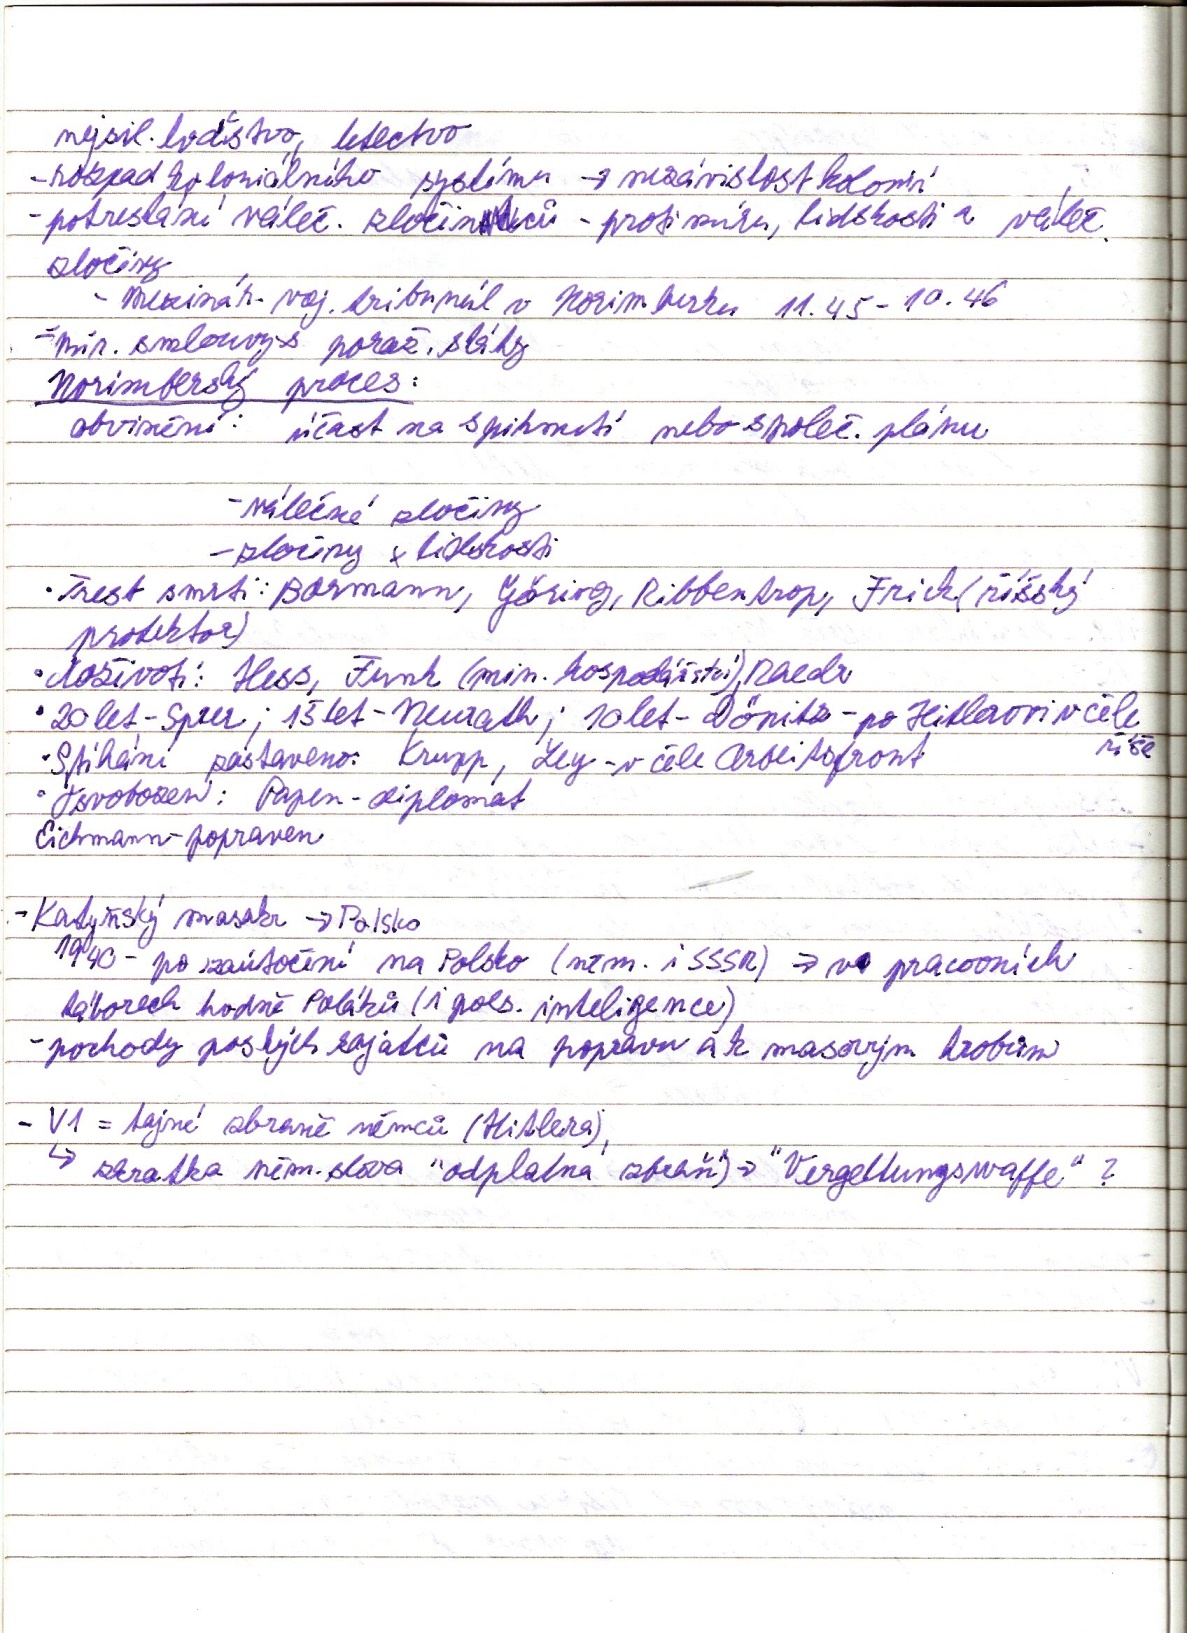 nejsil. loďstvo, letectvo
- rozpad koloniálního systému → nezávislost kolonií
- potrestání váleč. zločinců - proti míru, lidskosti a váleč.
zločiny
- Mezinár. voj. tribunál v Norimberku 11.45 - 10.46
- mír. smlouvy s poraž. státy
Norimberský proces:
obvinění: účast na spiknutí nebo společ. plánu
- válečné zločiny
- zločiny x lidskosti
• Trest smrti: Bormann, Göring, Ribbentrop, Frick (říšský
protektor)
• Doživotí: Hess, Funk (min. hospodářství), Raedr
• 20 let - Speer; 15 let - Neurath; 10 let - Dönitz - po Hitlerovi v čele
říše
• Stíhání zastaveno: Krupp, Ley - v čele Arbeitsfront
• Osvobozen: Papen - diplomat
Eichmann - popraven
- Katyňský masakr → Polsko
1940 - po zaútočení na Polsko (něm. i SSSR) → v pracovních
táborech hodně Poláků (i pols. inteligence)
- pochody polských zajatců na popravu a k masovým hrobům
- V1 = tajné zbraně němců (Hitlera)
↳ zkratka něm. slova "odplatná zbraň") → "Vergeltungswaffe" ?